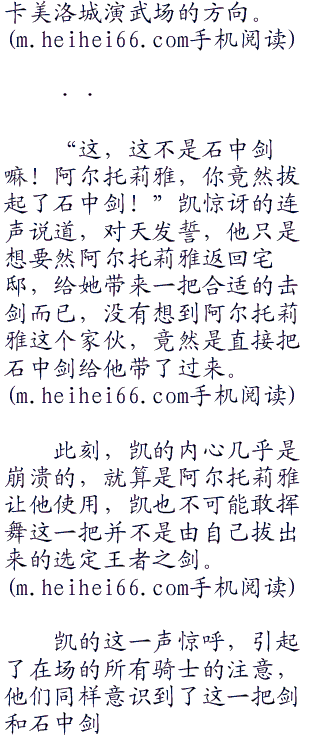 卡美洛城演武场的方向。
(m.heihei66.com手机阅读)
. .
“这，这不是石中剑
嘛！阿尔托莉雅，你竟然拔
起了石中剑！”凯惊讶的连
声说道，对天发誓，他只是
想要然阿尔托莉雅返回宅
邸，给她带来一把合适的击
剑而已，没有想到阿尔托莉
雅这个家伙，竟然是直接把
石中剑给他带了过来。
(m.heihei66.com手机阅读)
此刻，凯的内心几乎是
崩溃的，就算是阿尔托莉雅
让他使用，凯也不可能敢挥
舞这一把并不是由自己拔出
来的选定王者之剑。
(m.heihei66.com手机阅读)
凯的这一声惊呼，引起
了在场的所有骑士的注意，
他们同样意识到了这一把剑
和石中剑